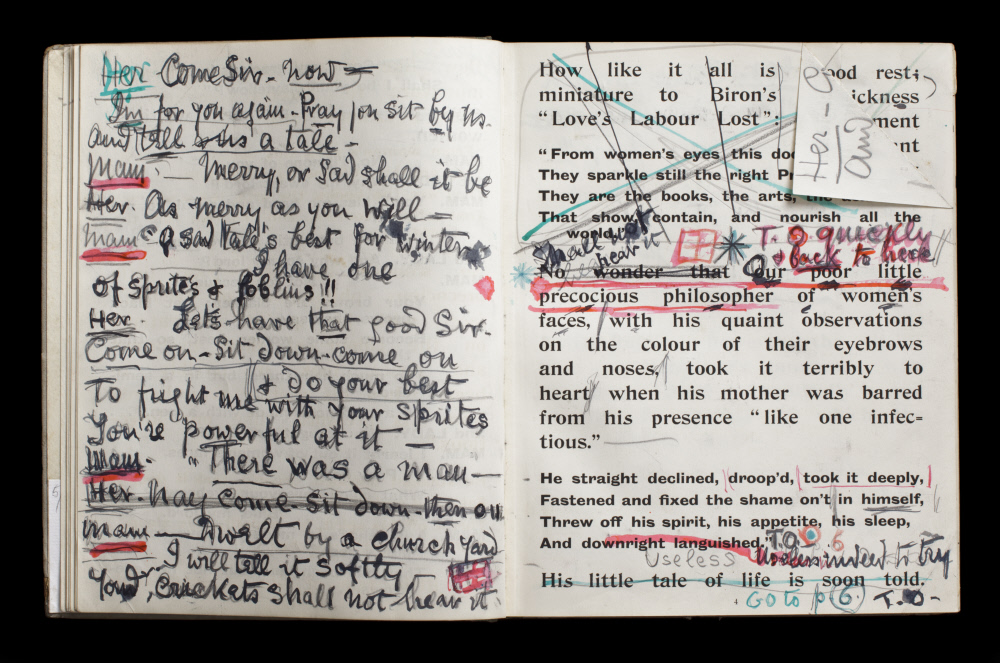 Her Come Sir - now -
I'm for you again. Pray you sit by us.
and tell us a tale -
Mam. - Merry, or Sad shall it be
Her. As merry as you will -
mam "a sad tale's best for winter
I have one
of Sprites & Goblins!!
Her. Let's have that good Sir.
Come on - Sit down - come on
& do your best
To fright me with your Sprites
You're powerful at it -
Mam. "There was a man -
Her. nay come sit down - then on
mam - Dwelt by a church yard
I will tell it softly
Yond Crickets shall not hear it
How like it all is
ood rest;
miniature to Biron's
ickness
"Love's Labour Lost":
ment
nt
Her -
and
"From women's eyes this do
They sparkle still the right Pr
They are the books, the arts,
That show, contain, and nourish all the
world."
Shall not
hear it
T.O quickly
& back to here
No wonder that our poor little
precocious philosopher of women's
faces, with his quaint observations
on the colour of their eyebrows
and noses, took it terribly to
heart when his mother was barred
from his presence "like one infec-
tious."
He straight declined, droop'd, took it deeply,
Fastened and fixed the shame on't in himself,
Threw off his spirit, his appetite, his sleep,
And downright languished."
T.O 6
Useless
Useless indeed to try
His little tale of life is soon told.
Go to p (6) T.O-